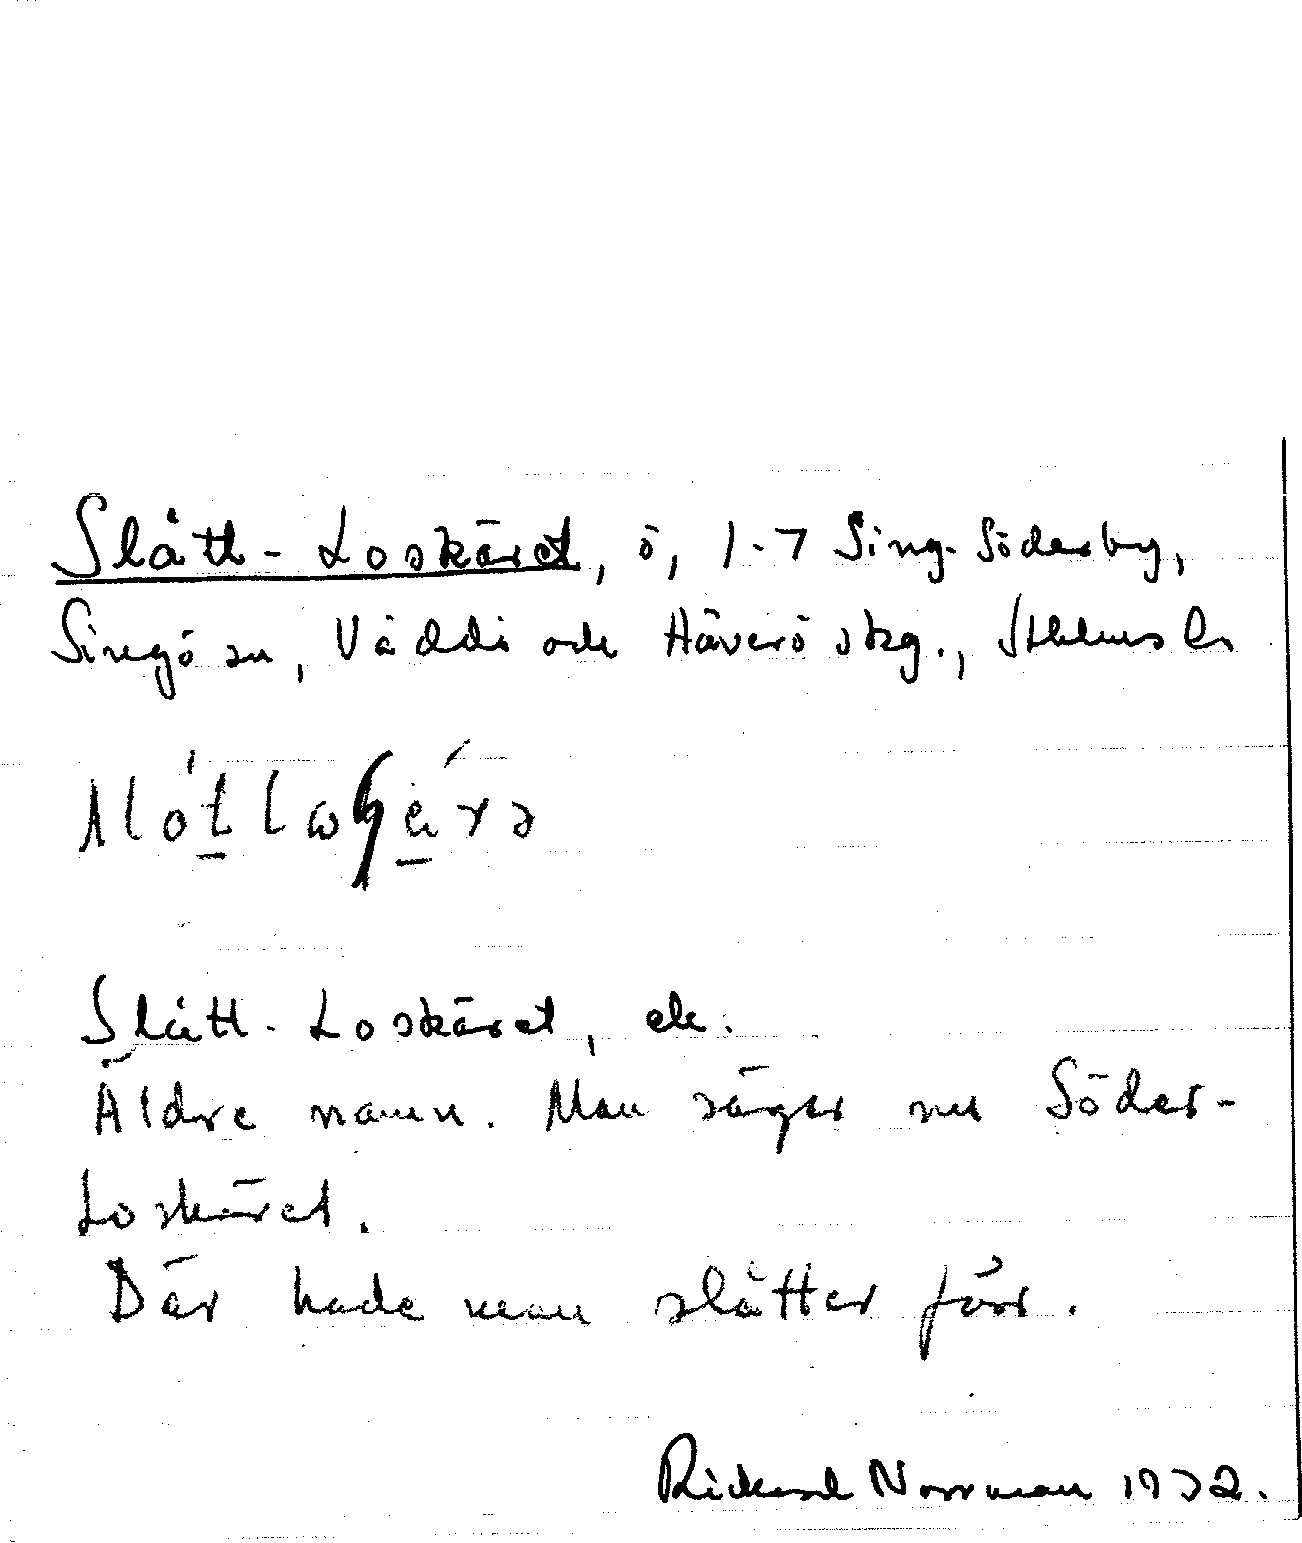 Slått-Loskäret, ö, 1-7 Sing-Söderby,
Singö sn, Väddö och Häverö skg., Sthlms l
Slått-Loskäret, ek.
Äldre namn. Man säger nu Söder-
Loskäret.
Där hade man slåtter förr.
Rickard Norrman 1932.